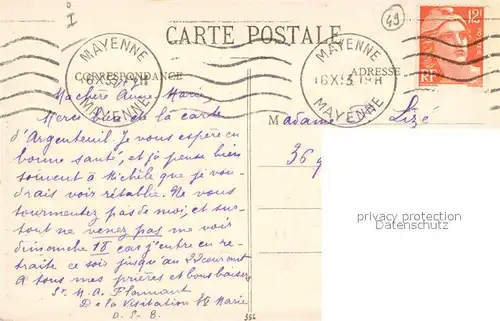 49
I
CARTE POSTALE
12F
POSTES
RF
MAYENNE
16 X 53 19H
MAYENNE
MAYENNE
16 X 53 19H
MAYENNE
CORRESPONDANCE
ADRESSE
Ma chère Anne-Marie,
Merci de la carte
d'Argenteuil. Je vous espère en
bonne santé, et je pense bien
souvent à Michèle que je vou-
drais voir rétablie. Ne vous
tourmentez pas de moi, et sur-
tout ne venez pas me voir
dimanche 18 car j'entre en re-
traite ce soir jusqu'au 27 courant
A tous mes prières et bons baisers
Sr. M. A. Flamant
De la Visitation Ste Marie
O. S. B.
366
Madame Lizé
36
privacy protection
Datenschutz